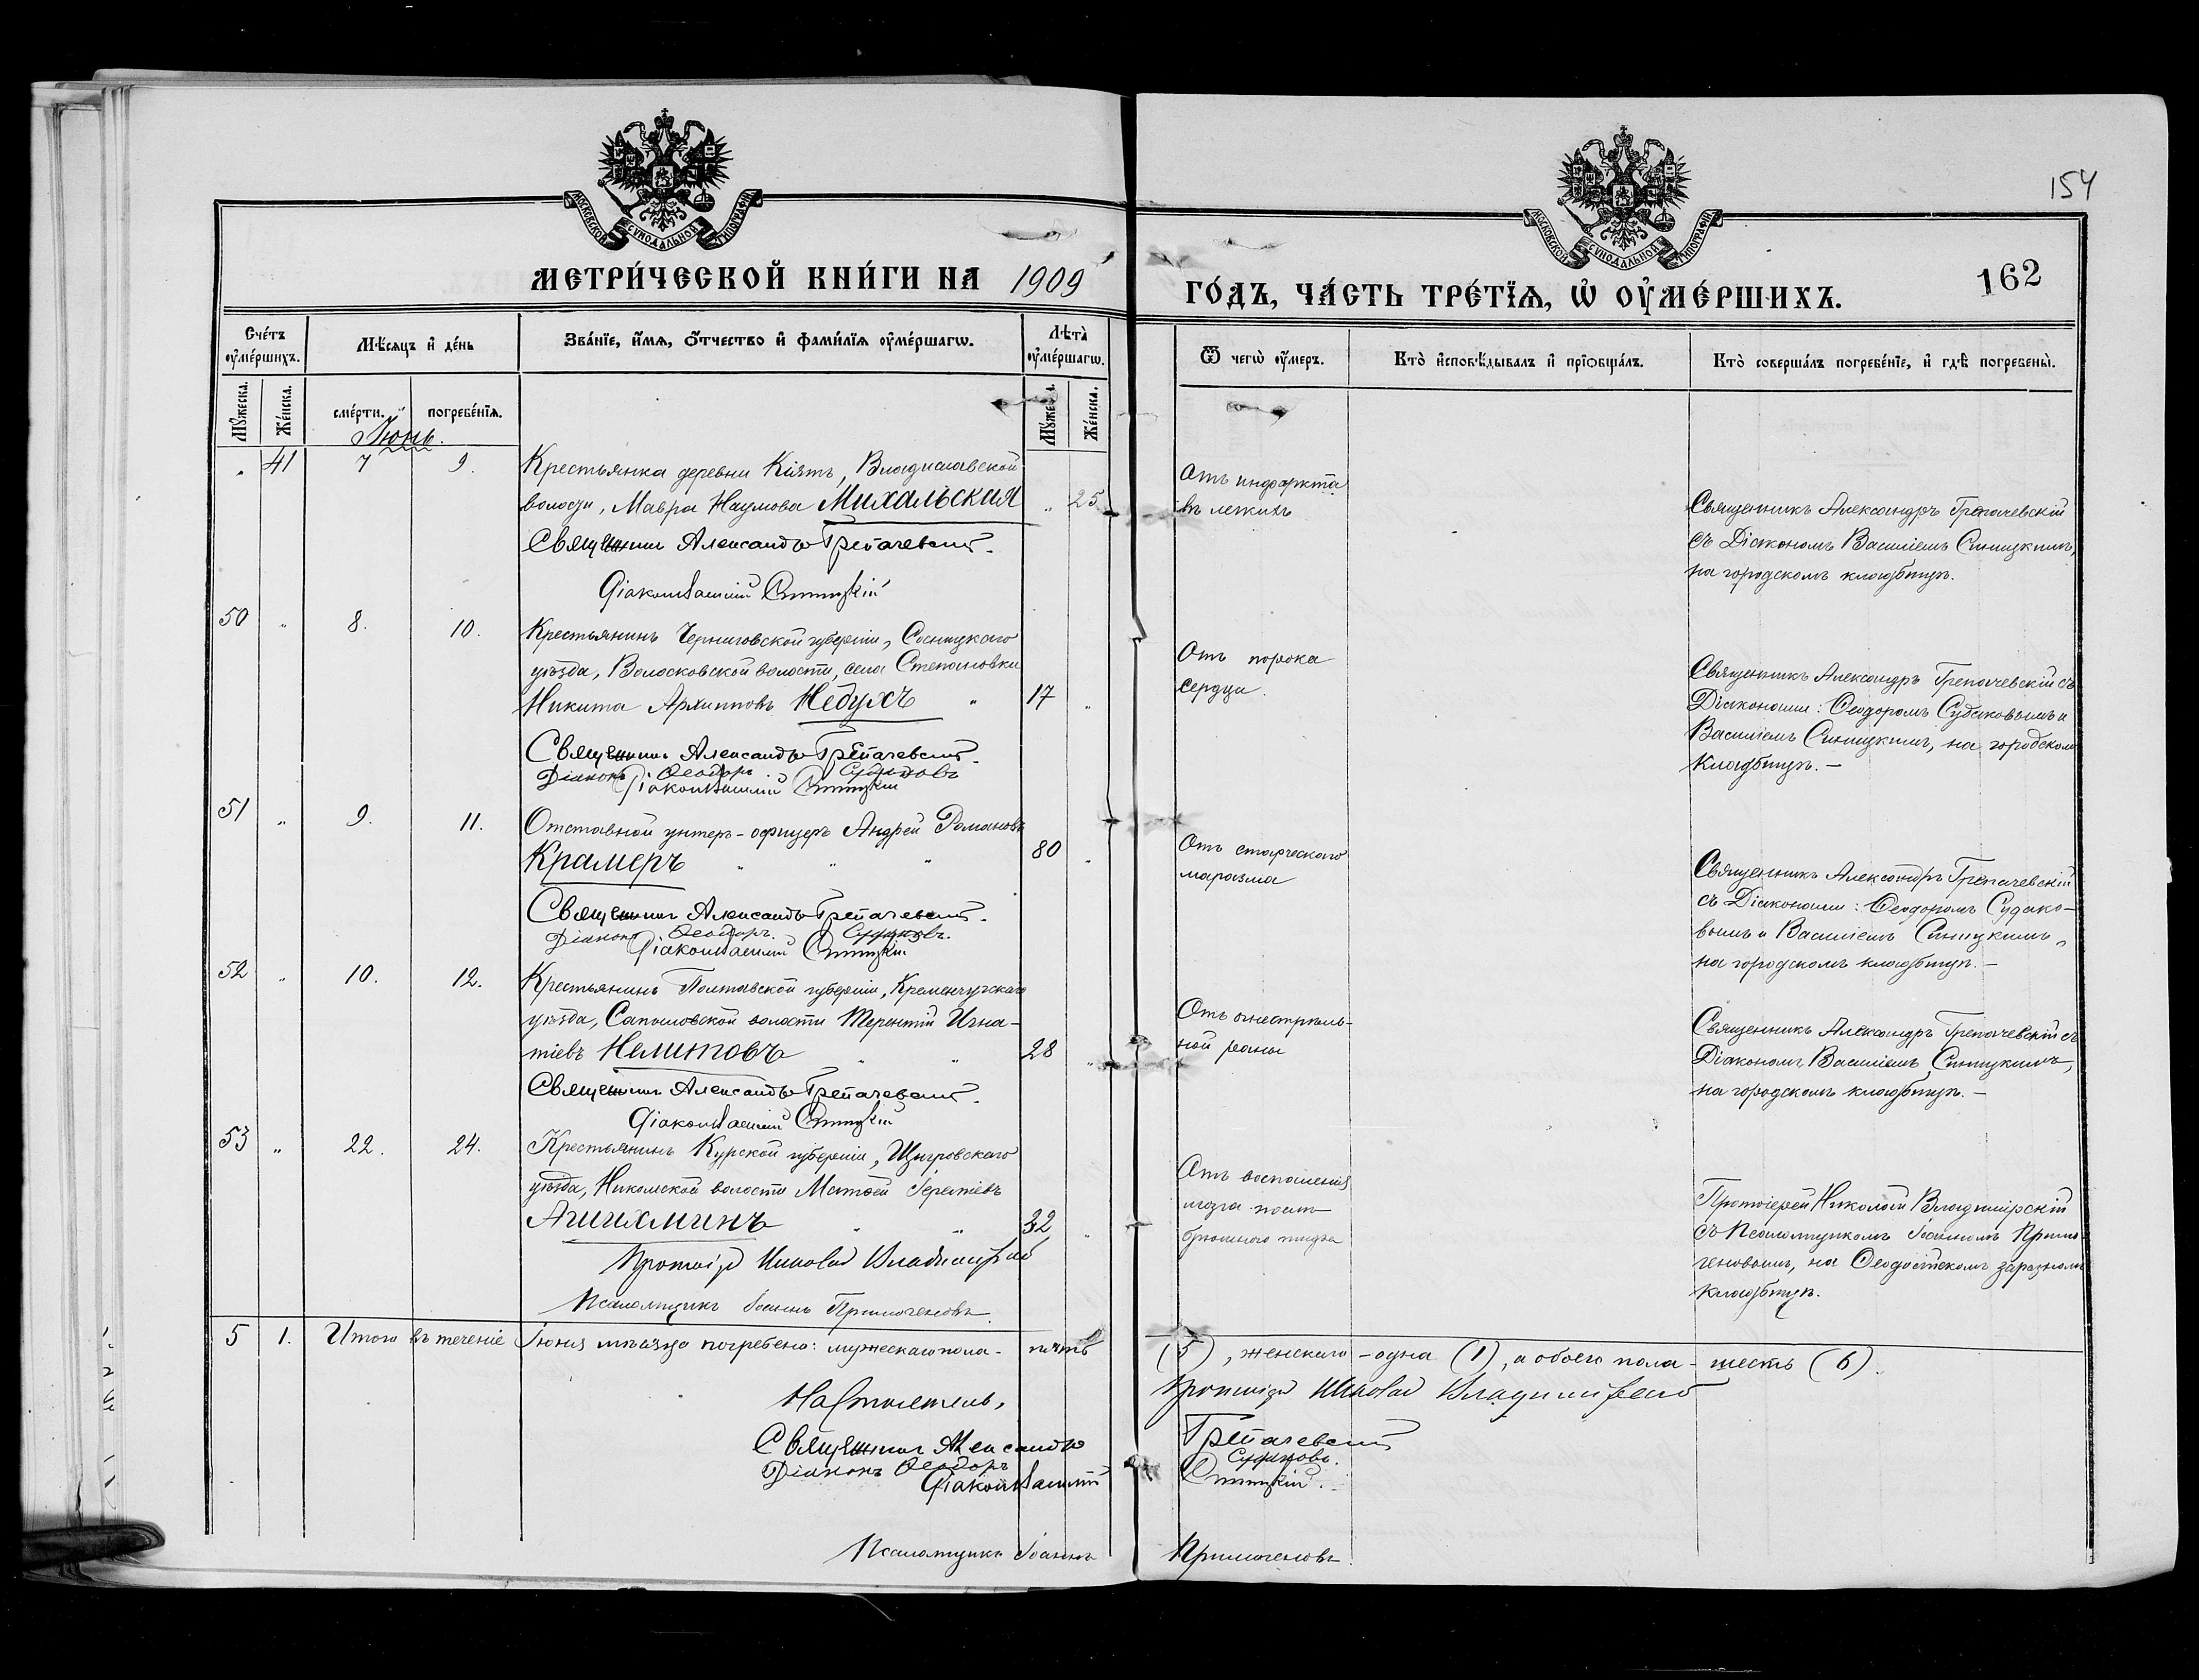 154
162
МОСКОВСКОЙ СѴНОДАЛЬНОЙ ТИПОГРАФІИ
МОСКОВСКОЙ СѴНОДАЛЬНОЙ ТИПОГРАФІИ
МЕТРИ́ЧЕСКОЙ КНИ́ГИ НА 1909
ГО́ДЪ, ЧА́СТЬ ТРЕ́ТІѦ, Ѡ҆ ОУ҆МЕ́РШИХЪ.
Сче́тъ оу҆ме́ршихъ.
Мѣ́сѧцъ и҆ де́нь
Зва́нїе, и҆́мѧ, ѻ҆́тчество и҆ фами́лїѧ оу҆ме́ршагѡ.
Лѣ́та оу҆ме́ршагѡ.
Ѿ чегѡ̀ оу҆́меръ.
Кто̀ и҆сповѣ́дывалъ и҆ прїѻбща́лъ.
Кто̀ соверша́лъ погребе́нїе, и҆ гдѣ̀ погребены̀.
Мꙋ́жеска.
Же́нска.
сме́рти.
погребе́нїѧ.
Мꙋ́жеска.
Же́нска.
Іюнь.
„ 41 7 9. Крестьянка деревни Кіятъ, Владиславской
волости, Мавра Наумова Михальская „ 25.
Священникъ Александръ Трепачевскій.
Діаконъ Василій Синицкій
Отъ инфаркта
въ легкихъ
Священникъ Александръ Трепачевскій
съ Діакономъ Василіемъ Синицкимъ,
на городскомъ кладбищѣ.
50 „ 8. 10. Крестьянинъ Черниговской губерніи, Сосницкаго
уѣзда, Волосковской волости, села Степановки
Никита Архипповъ Небухъ „ 17 „
Священникъ Александръ Трепачевскій.
Діаконъ Ѳеодоръ Судаковъ
Діаконъ Василій Синицкій
Отъ порока
сердца.
Священникъ Александръ Трепачевскій съ
Діаконами: Ѳеодоромъ Судаковымъ и
Василіемъ Синицкимъ, на городскомъ
кладбищѣ. —
51 „ 9. 11. Отставной унтеръ-офицеръ Андрей Романовъ
Крамеръ „ „ „ 80 „
Священникъ Александръ Трепачевскій.
Діаконъ Ѳеодоръ Судаковъ.
Діаконъ Василій Синицкій
Отъ старческаго
маразма
Священникъ Александръ Трепачевскій
съ Діаконами: Ѳеодоромъ Судако-
вымъ и Василіемъ Синицкимъ,
на городскомъ кладбищѣ. —
52 „ 10. 12. Крестьянинъ Полтавской губерніи, Кременчугскаго
уѣзда, волости Терентій Игна-
тіевъ Нелитовъ „ „ 28 „
Священникъ Александръ Трепачевскій.
Діаконъ Василій Синицкій
Отъ огнестрѣль-
ной раны
Священникъ Александръ Трепачевскій съ
Діакономъ Василіемъ Синицкимъ,
на городскомъ кладбищѣ. —
53 „ 22. 24. Крестьянинъ Курской губерніи, Щигровскаго
уѣзда, Никольской волости Матѳей
Агихминъ „ „ 32 „
Протоіерей Николай Владимірскій
Псаломщикъ Іоаннъ Примогеновъ
Отъ воспаленія
мозга послѣ
брюшного тифа
Протоіерей Николай Владимірскій
съ Псаломщикомъ Іоанномъ Примо-
геновымъ, на Ѳеодосійскомъ заразномъ
кладбищѣ.
5 1. Итого въ теченіе Іюня мѣсяца погребено: мужескаго пола - пять (5), женскаго - одна (1), а обоего пола - шесть (6).
Настоятель, Протоіерей Николай Владимірскій
Священникъ Александръ Трепачевскій
Діаконъ Ѳеодоръ Судаковъ.
Діаконъ Василій Синицкій.
Псаломщикъ Іоаннъ Примогеновъ